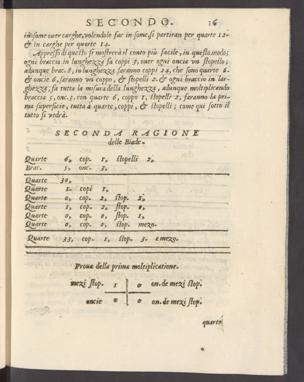 SECONDO. 36
in some uere carghe, volendole far in some, si partiran per quarte 12.
& in carghe per quarte 14.
Appresso di questi si mostrerà il conto più facile, in questo modo;
ogni braccio in lunghezza fà coppi 3, ouer ogni oncie vn stopello;
adunque brac. 8, in lunghezza faranno coppi 24, che sono quarte 6.
& oncie 6, saranno vn coppo, & stopelli 2. & ogni braccio in lar-
ghezza, fà tutta la misura della lunghezza, adunque moltiplicando
braccia 5, onc. 3, con quarte 6, coppi 1, stopelli 2, faranno la pri-
ma superficie, tutta à quarte, coppi, & stopelli; come qui sotto il
tutto si vedrà.
SECONDA RAGIONE
delle Biade.
Quarte 6, cop. 1, stopelli 2,
Brac. 5, onc. 3,
Quarte 30,
Quarte 1. copi 1,
Quarte 0, cop. 2, stop. 2,
Quarte 1, cop. 2, stop. 0,
Quarte 0, cop. 0, stop. 1,
Quarte 0, cop. 0, stop. mezo.
Quarte 33, cop. 1, stop. 3. e mezo.
Proua della prima moltiplicatione.
mezi stop. 1 0 on. de mezi stop.
oncie 0 0 on. de mezi stop.
quarte